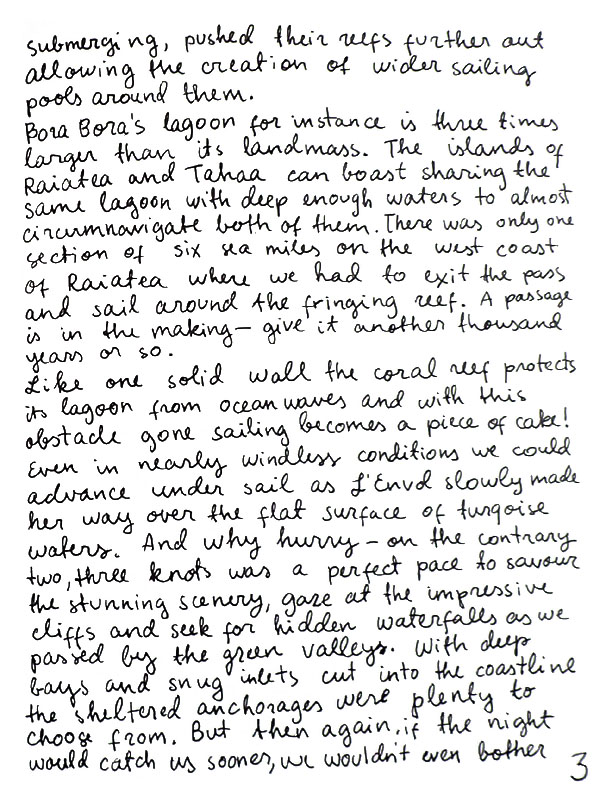 submerging, pushed their reefs further out
allowing the creation of wider sailing
pools around them.
Bora Bora's lagoon for instance is three times
larger than its landmass. The islands of
Raiatea and Tahaa can boast sharing the
same lagoon with deep enough waters to almost
circumnavigate both of them. There was only one
section of six sea miles on the west coast
of Raiatea where we had to exit the pass
and sail around the fringing reef. A passage
is in the making – give it another thousand
years or so.
Like one solid wall the coral reef protects
its lagoon from ocean waves and with this
obstacle gone sailing becomes a piece of cake!
Even in nearly windless conditions we could
advance under sail as L'Envol slowly made
her way over the flat surface of turqoise
waters. And why hurry – on the contrary
two, three knots was a perfect pace to savour
the stunning scenery, gaze at the impressive
cliffs and seek for hidden waterfalls as we
passed by the green valleys. With deep
bays and snug inlets cut into the coastline
the sheltered anchorages were plenty to
choose from. But then again, if the night
would catch us sooner, we wouldn't even bother
3